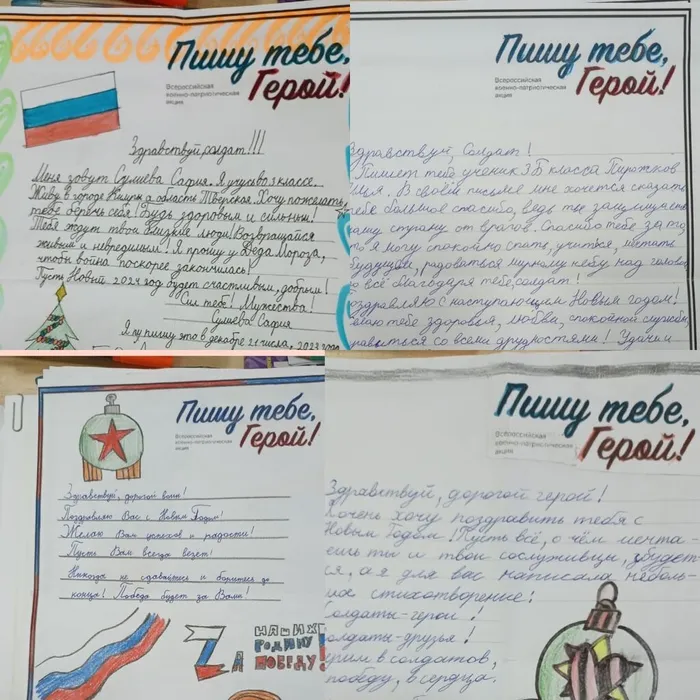 Пишу тебе,
Герой!
Всероссийская
военно-патриотическая
акция
Здравствуй, солдат!!!
Меня зовут Сулиева София. Я учусь в 3 классе.
Живу в городе Кашин, а область Тверская. Хочу пожелать,
тебе беречь себя! Будь здоровым и сильным!
Тебя ждут твои близкие люди! Возвращайся
живым и невредимым! Я прошу у Деда Мороза,
чтобы война поскорее закончилась!
Пусть Новый 2024 год будет счастливым, добрым!
Сил тебе! Мужества!
София
Я пишу это в декабре 21 числа, 2023 года
Пишу тебе,
Герой!
Всероссийская
военно-патриотическая
акция
Здравствуй, Солдат!
Пишет тебе ученик 3Б класса Пирожков
Илья. В своём письме мне хочется сказать
тебе большое спасибо, ведь ты защищаешь
нашу страну от врагов. Спасибо тебе за то,
что я могу спокойно спать, учиться, мечтать
будущем, радоваться мирному небу над голово
о всё благодаря тебе, солдат!
оздравляю с наступающим Новым годом!
елаю тебе здоровья, любви, спокойной службы
равиться со всеми трудностями! Удачи и
Пишу тебе,
Герой!
Всероссийская
военно-патриотическая
акция
Здравствуй, дорогой воин!
Поздравляю Вас с Новым Годом!
Желаю Вам успехов и радости!
Пусть Вам всегда везёт!
Никогда не сдавайтесь и боритесь до
конца! Победа будет за Вами!
ZA НАШИХ
РОДИНУ
ПОБЕДУ!
Пишу тебе,
Герой!
Всероссийская
военно-патриотическая
акция
Здравствуй, дорогой герой!
Я очень хочу поздравить тебя с
Новым Годом! Пусть всё, о чём мечта-
ешь ты и твои сослуживцы, збудет-
ся, а я для вас написала неболь-
шое стихотворение:
Солдаты-герои!
Солдаты-друзья!
ерим в солдатов,
победу, в сердца.